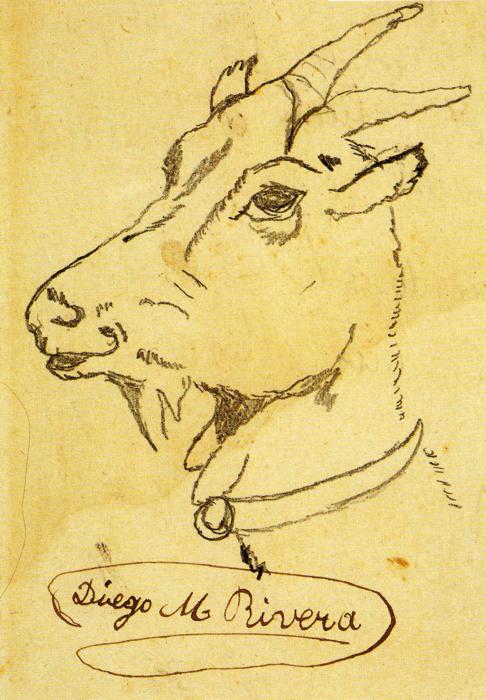 Diego M Rivera